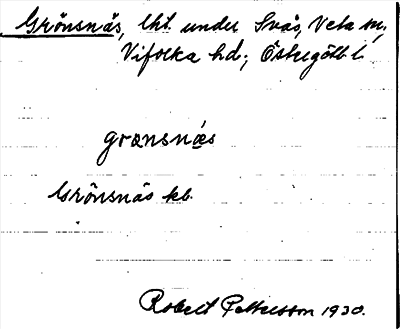 Grönsnäs, lht. under Sväs, Veta sn,
Vifolka hd; Östergötl. l.
grœnsnæs
Grönsnäs kb.
Robert Pettersson 1930.